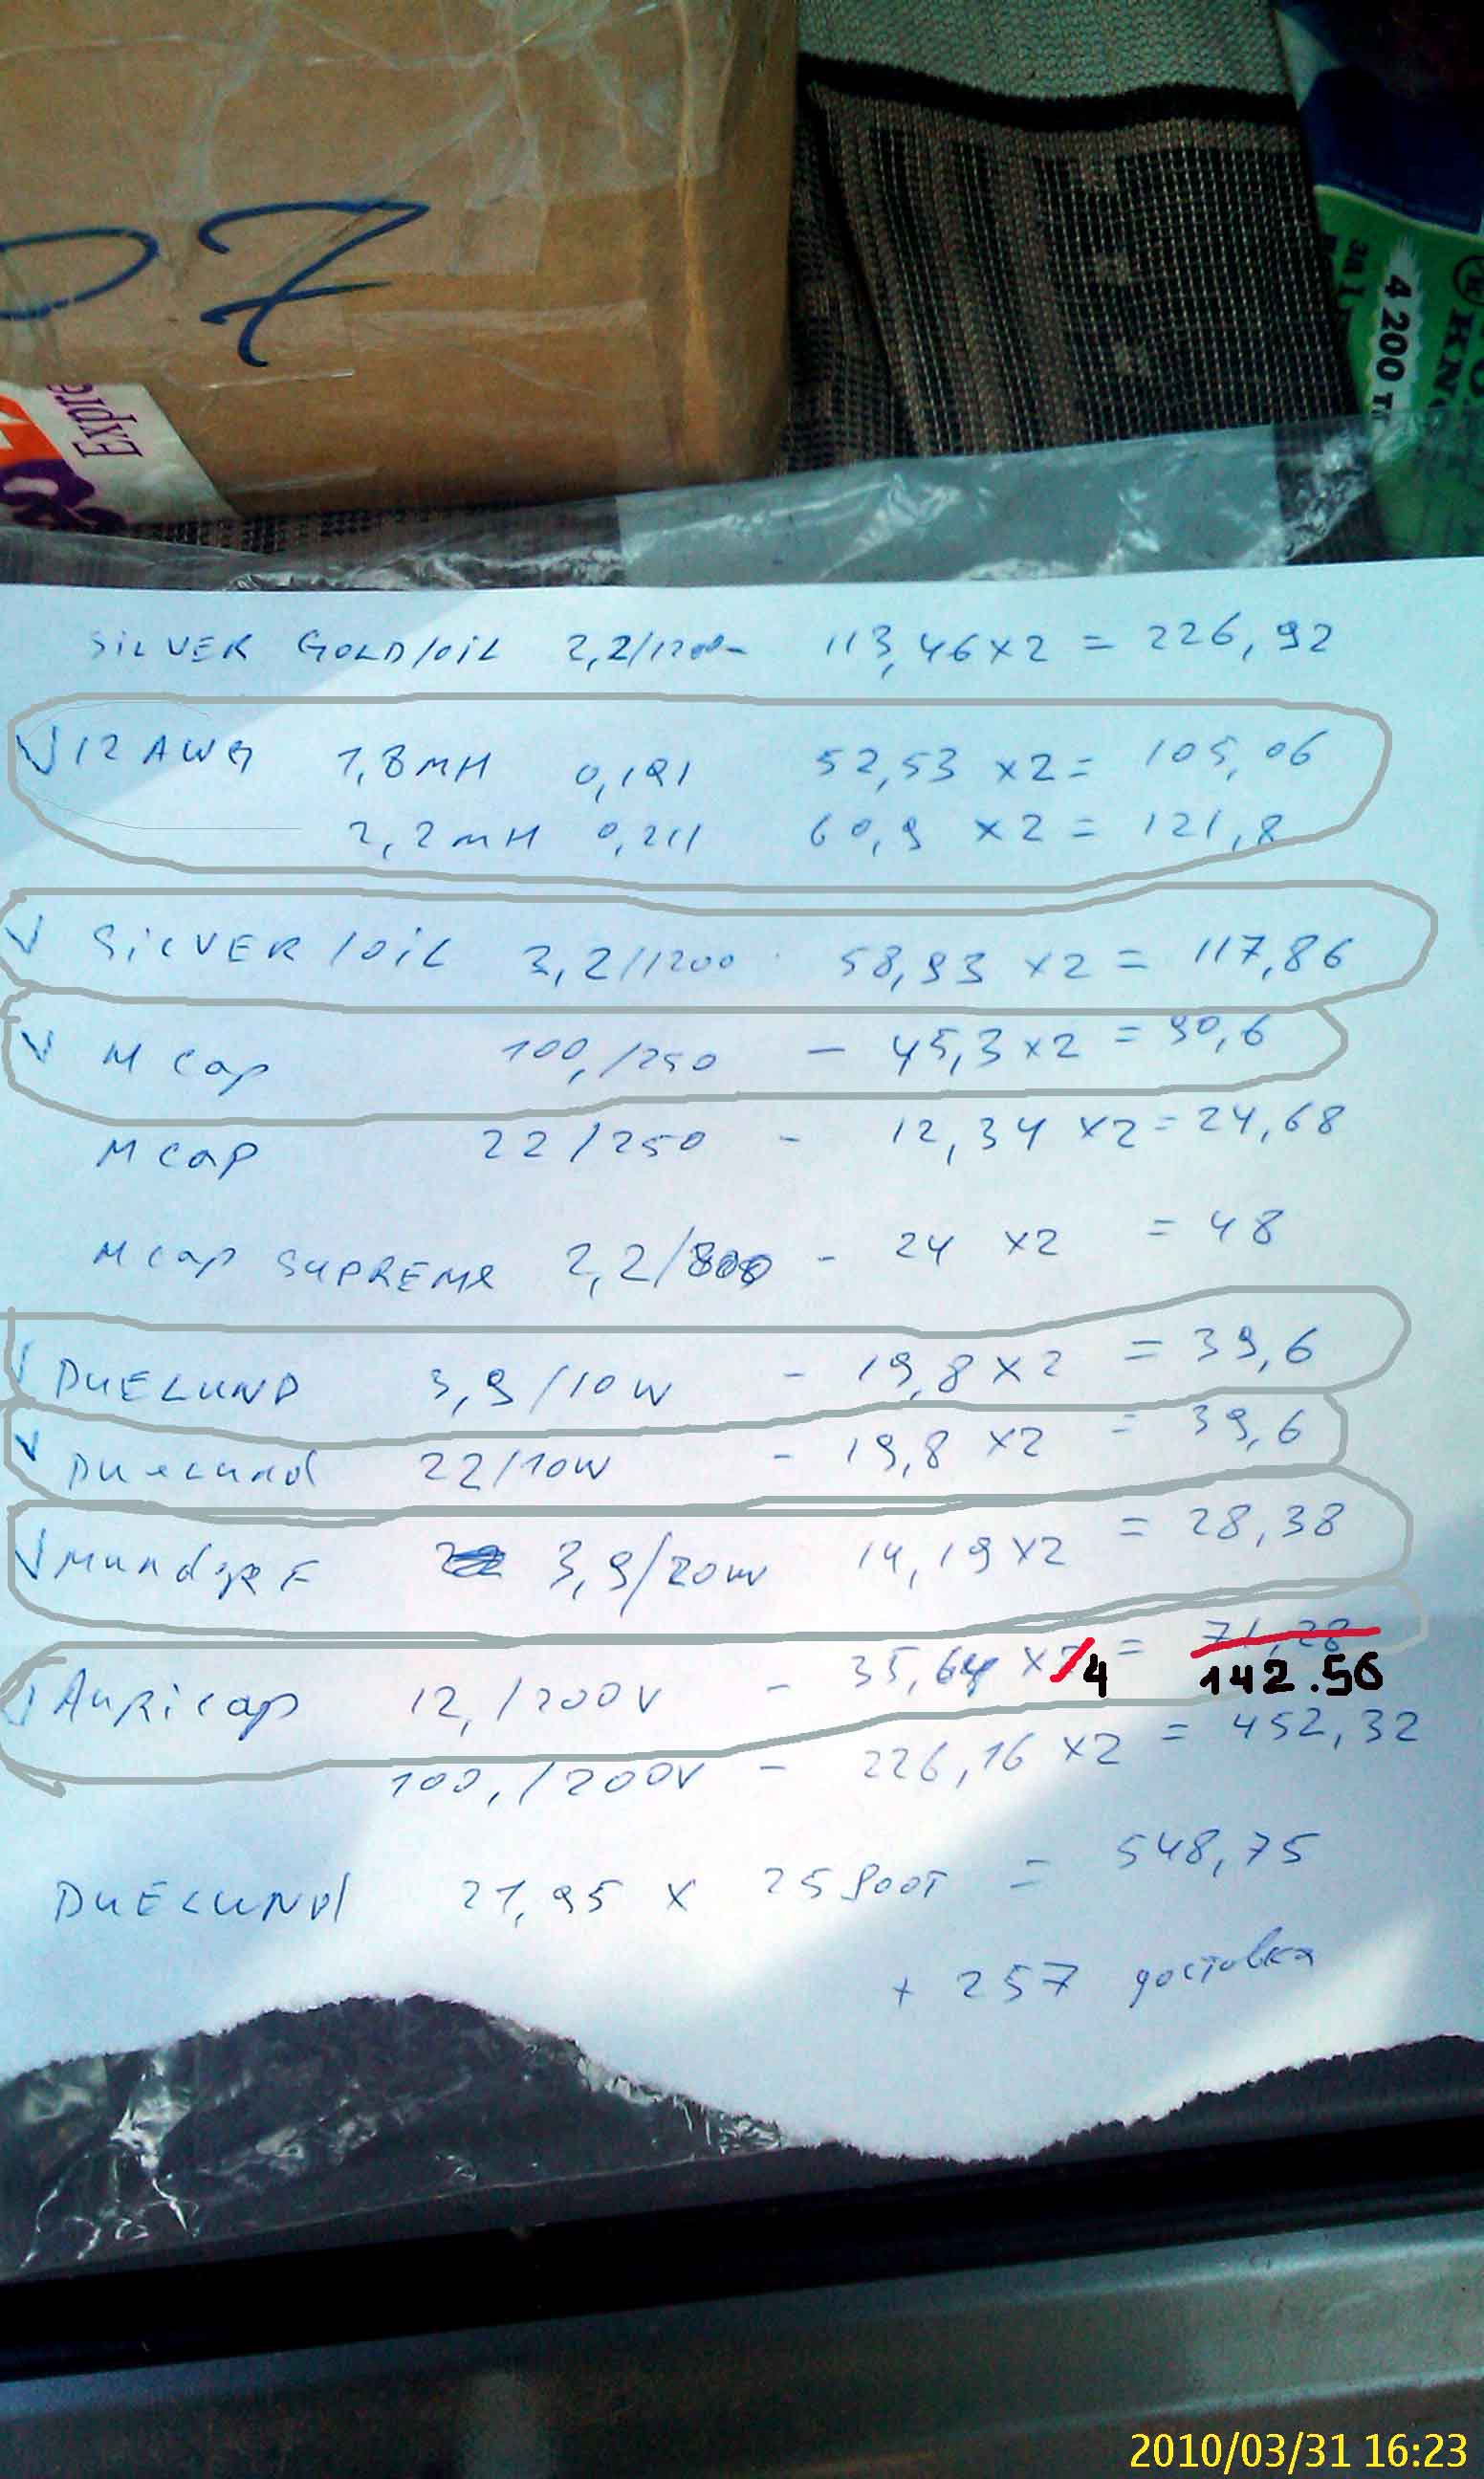 07
Expre
4 200 Т
SILVER GOLD/OIL 2,2/1200 - 113,46 x 2 = 226,92
12 AWG 1,8 mH 0,191 52,53 x 2 = 105,06
2,2 mH 0,211 60,9 x 2 = 121,8
SILVER/OIL 2,2/1200 58,93 x 2 = 117,86
M Cap 100,/250 - 45,3 x 2 = 90,6
M Cap 22/250 - 12,34 x 2 = 24,68
M Cap SUPREME 2,2/800 - 24 x 2 = 48
DUELUND 3,9/10W - 19,8 x 2 = 39,6
Duelund 22/10W - 19,8 x 2 = 39,6
Mundorf 3,9/20W 14,19 x 2 = 28,38
Auricap 12,/200V - 35,64 x 2 4 = 71,28
142.56
100,/200V - 226,16 x 2 = 452,32
DUELUND 21,95 x 25 foot = 548,75
+ 257 доставка
2010/03/31 16:23